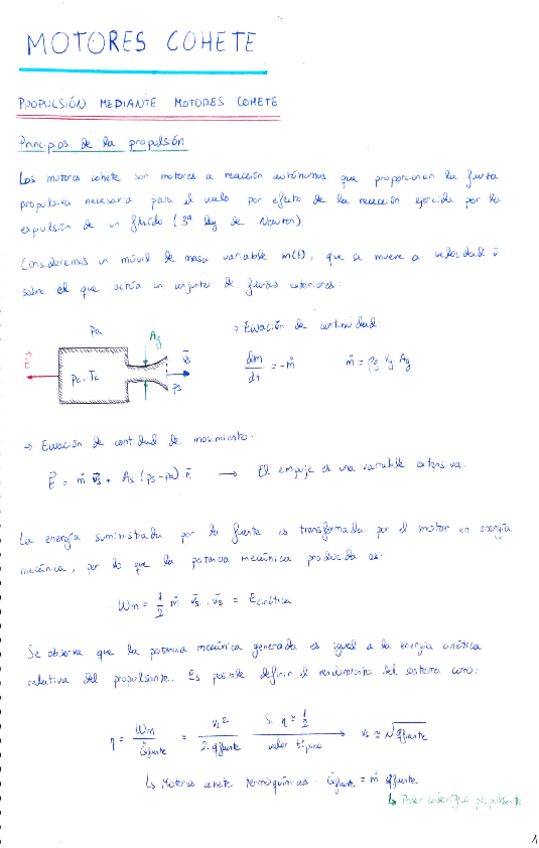 MOTORES COHETE
PROPULSIÓN MEDIANTE MOTORES COHETE
Principios de la propulsión
Los motores cohete son motores a reacción autónomos que proporcionan la fuerza
propulsiva necesaria para el vuelo por efecto de la reacción ejercida por la
expulsión de un fluido (3ª ley de Newton).
Consideremos un móvil de masa variable m(t), que se mueve a velocidad v̄
sobre el que actúa un conjunto de fuerzas exteriores:
pa Ag
→ Ecuación de continuidad:
E⃗ pc, Tc v̄s ps
dm/dt = -ṁ ṁ = ρg vg Ag
→ Ecuación de cantidad de movimiento:
E⃗ = ṁ v̄s + As (ps-pa) n̄ → El empuje es una variable extensiva.
La energía suministrada por la fuente es transformada por el motor en energía
mecánica, por lo que la potencia mecánica producida es:
Wm = 1/2 ṁ v̄s · v̄s = Ecinética
Se observa que la potencia mecánica generada es igual a la energía cinética
relativa del propulsante. Es posible definir el rendimiento del sistema como:
η = Wm/Ėfuente = vs²/2 qfuente Si η ≃ 1/2 valor típico → vs ≃ √qfuente
↳ Motores cohete termoquímicos: Ėfuente = ṁ qfuente
↳ Poder energético propulsante
1